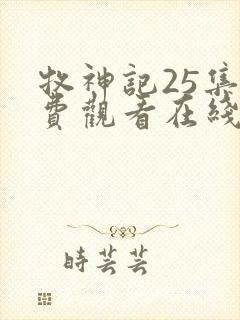 牧神記25集
費觀看在綫
時芸芸